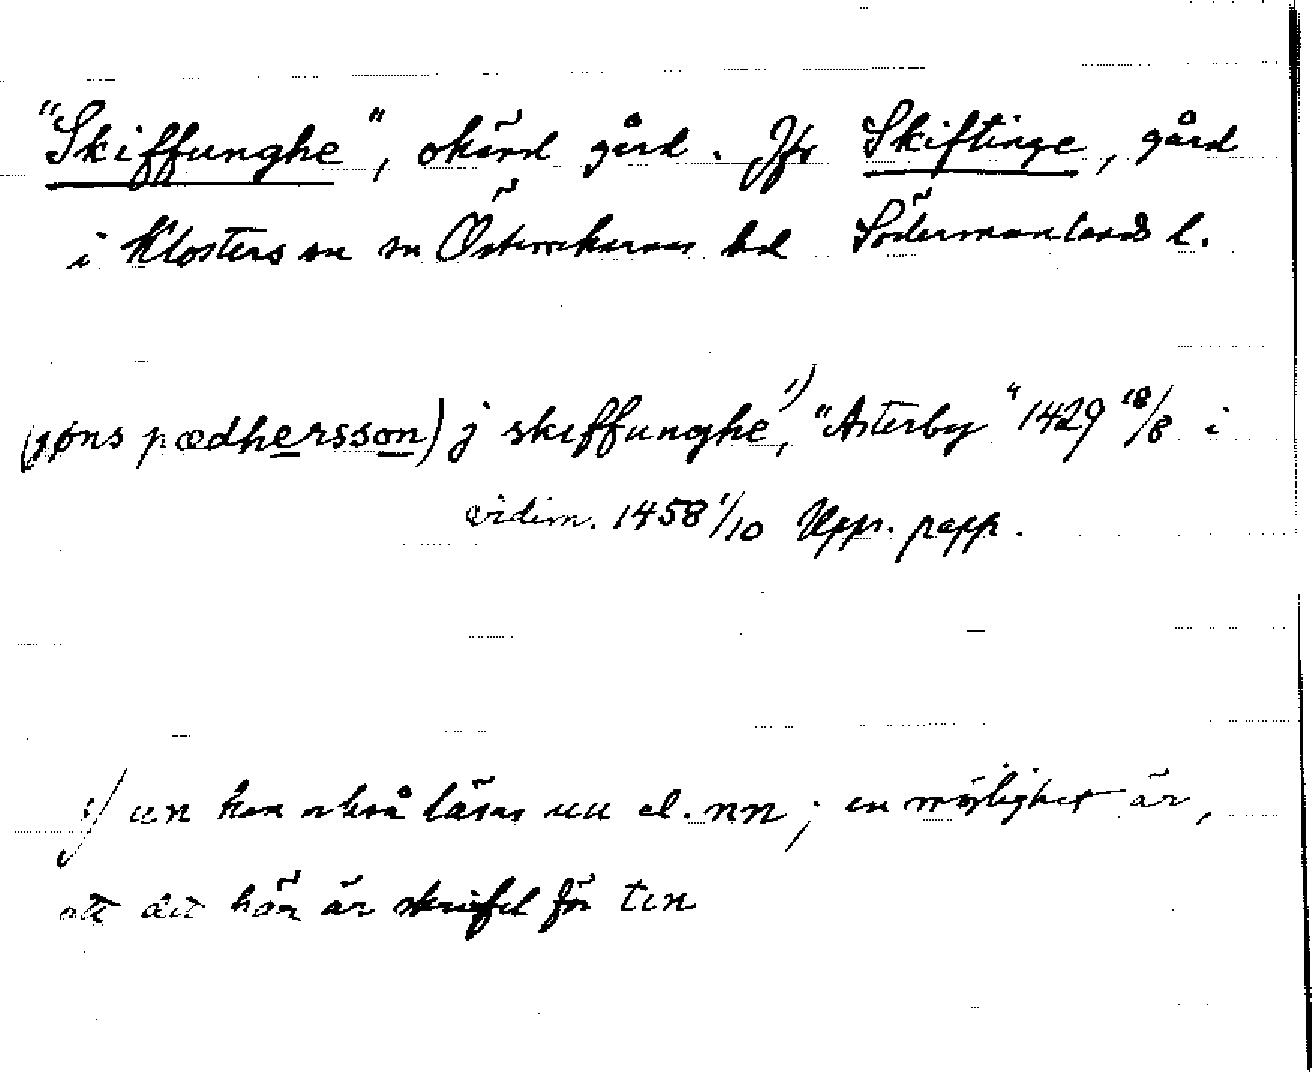 "Skiffunghe", okänd gård. Jfr Skiftinge, gård
i Klosters sn Österrekarnes hd Södermanlands l.
(jøns pædhersson) j skiffunghe,¹⁾ "Asterby" 1429 18/8 i
vidim. 1458 1/10 Upps. papp.
1) un kan också läsas uu el. nn; en möjlighet är,
att det här är skrivfel för tin